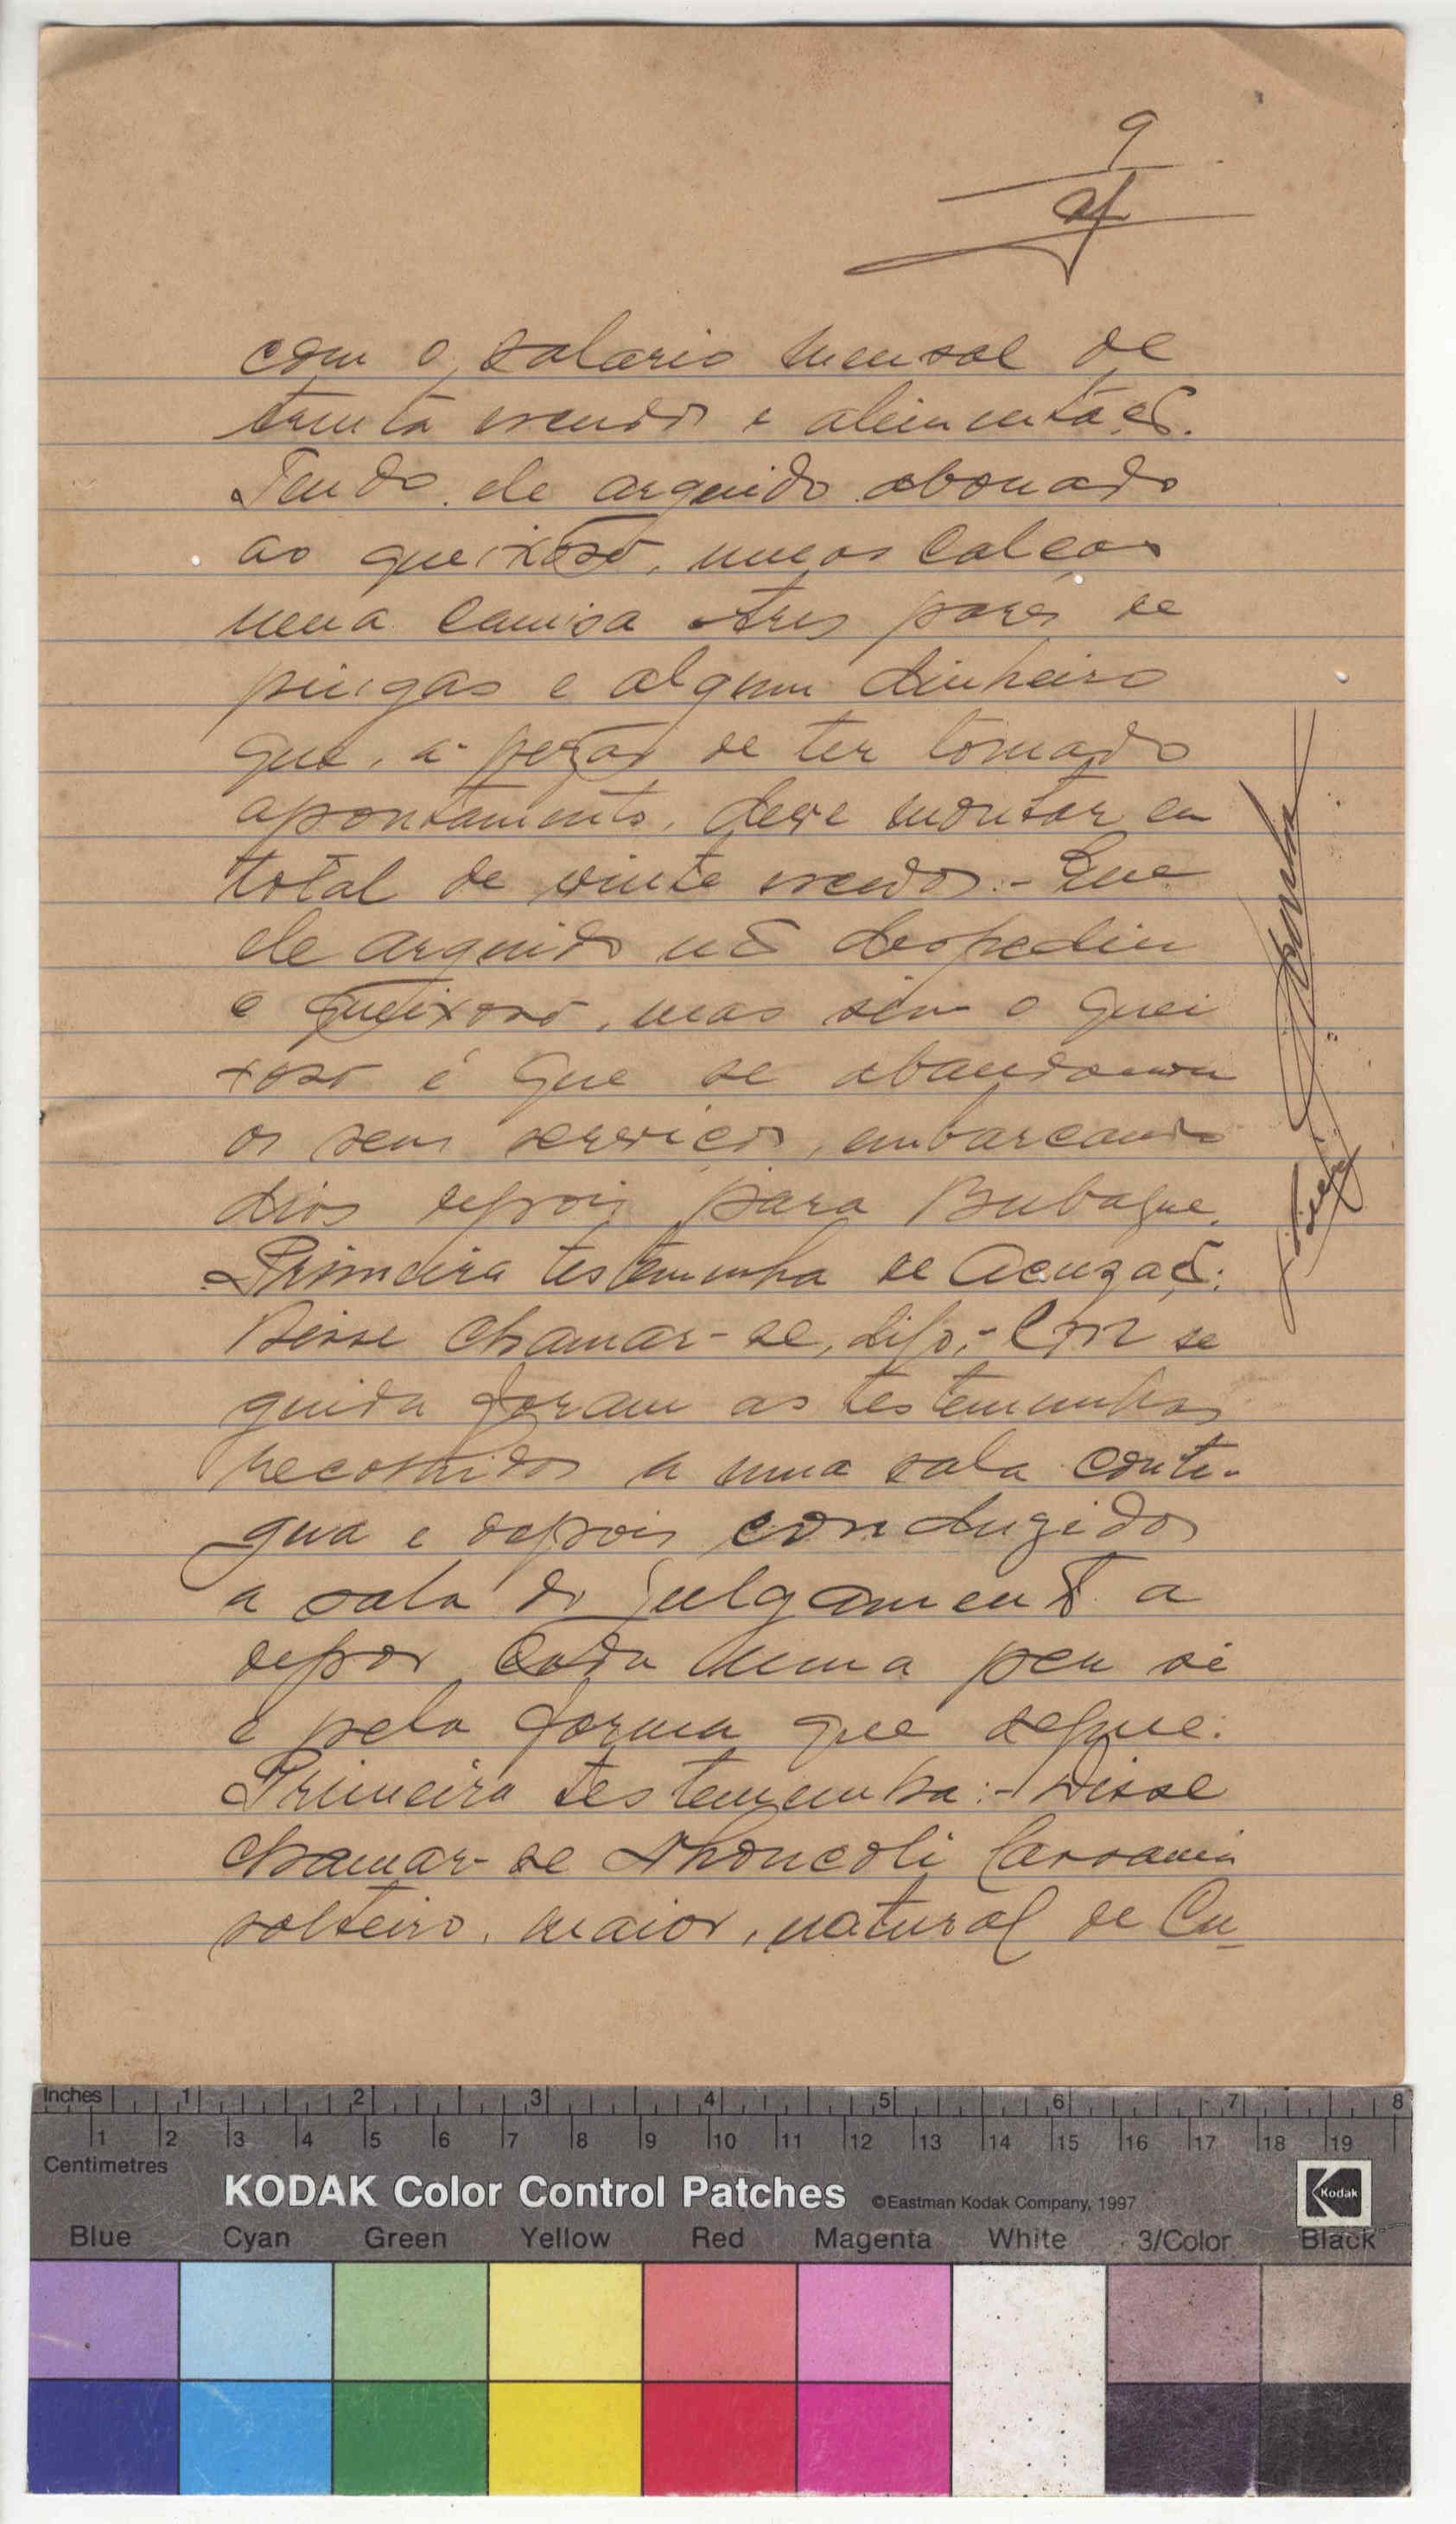 9
com o salario mensal de
trinta escudos e alimentação.
Tendo ele arguido abonado
ao queixoso, umas calças
uma camisa tres pares de
piugas e algum dinheiro
que, a-pezar de ter tomado
apontamento, deve montar em
total de vinte escudos.- Que
ele arguido nõ despediu
o queixoso, mas sim o quei
xoso é que se abandonou
os seus serviços, embarcando
dias depois para Bubaque.
Primeira testemunha de Acuzação:
Disse chamar-se, digo,- Em se
guida foram as testemunhas
recolhidas a uma sala conti-
gua e depois conduzidas
a sala do julgamento a
depor cada uma per si
e pela forma que segue:
Primeira testemunha:- Disse
chamar-se
solteiro, maior, natural de Cu-
Inches 1 2 3 4 5 6 7 8
1 2 3 4 5 6 7 8 9 10 11 12 13 14 15 16 17 18 19
Centimetres
KODAK Color Control Patches ©Eastman Kodak Company, 1997 Kodak
Blue Cyan Green Yellow Red Magenta White 3/Color Black